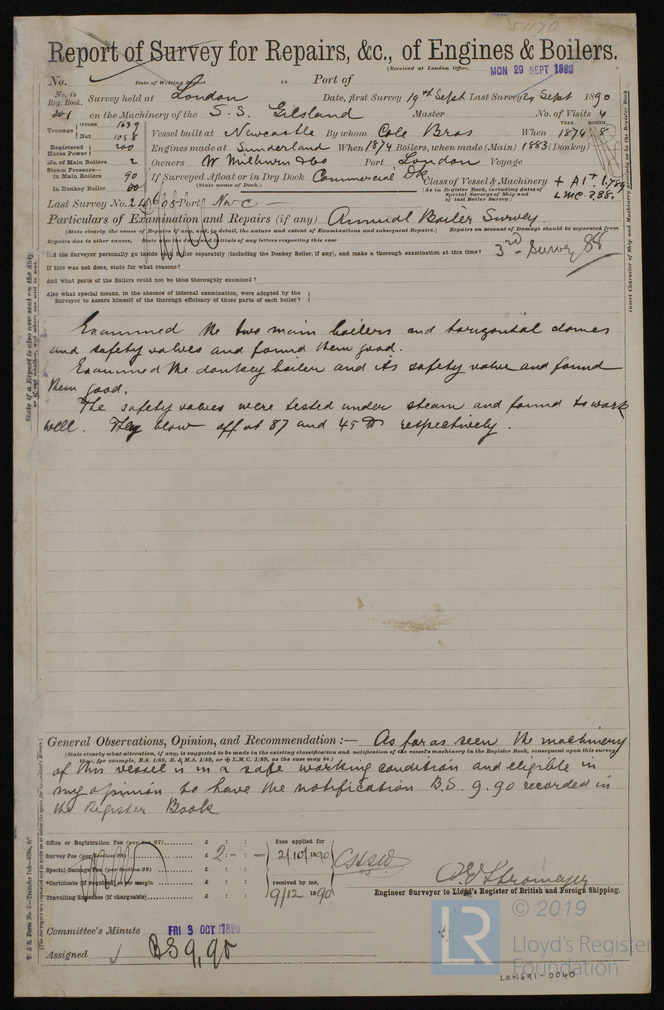 51170
Report of Survey for Repairs, &c., of Engines & Boilers.
(Received at London Office, MON 29 SEPT 1890
No. Date of Writing Report 18 Port of
No. in Reg. Book. Survey held at London Date, first Survey 19th Sept Last Survey 20 Sept 1890
201 on the Machinery of the S.S. Gilsland Master No. of Visits 4
Tonnage Gross 1639 Net 1058 Vessel built at Newcastle By whom Cole Bros When YEAR. 1874 MONTH. 8
Registered Horse Power 200 Engines made at Sunderland When 1874 Boilers, when made (Main) 1883 (Donkey)
No. of Main Boilers 2 Owners W Milburn & Co Port London Voyage
Steam Pressure— in Main Boilers 90 If Surveyed Afloat or in Dry Dock Commercial Dk Class of Vessel & Machinery + A1
(State name of Dock.) (As in Register Book, including dates of Special Surveys of Ship and of last Boiler Survey.) LMC
in Donkey Boiler 60
Last Survey No. Port Nwc
Particulars of Examination and Repairs (if any) Annual Boiler Survey.
(State clearly the cause of Repairs if any and, in detail, the nature and extent of Examinations and subsequent Repairs.) Repairs on account of Damage should be separated from
Repairs due to other causes, State initials of any letters respecting this case
Did the Surveyor personally go inside each boiler separately (including the Donkey Boiler, if any), and make a thorough examination at this time? 3rd Survey 88
If this was not done, state for what reasons?
And what parts of the Boilers could not be thus thoroughly examined?
Also what special means, in the absence of internal examination, were adopted by the
Surveyor to assure himself of the thorough efficiency of those parts of each boiler?
Examined the two main boilers and horizontal domes
and safety valves and found them good.
Examined the donkey boiler and its safety valve and found
them good.
The safety valves were tested under steam and found to work
well. They blow off at 87 and 45 lb respectively.
General Observations, Opinion, and Recommendation :— As far as seen the machinery
(State clearly what alteration, if any, is suggested to be made in the existing classification and notification of the vessel's machinery in the Register Book, consequent upon this survey
thus, for example, B.S. 1/89, B. & M.S. 1/89, or L.M.C. 1/89, as the case may be.)
of this vessel is in a safe working condition and eligible in
my opinion to have the notification B.S. 9.90 recorded in
the Register Book
Office or Registration Fee (per Sect 27) £ : : Fees applied for
Survey Fee (per Section 28) £ 2 : - : - 2/10/1890
Special Damage Fee (per Section 28) £ : :
*Certificate (if required) as per margin £ : : received by me,
Travelling Expenses (if chargeable) £ : : 9/12 1890
C E Stromeyer
Engineer Surveyor to Lloyd's Register of British and Foreign Shipping.
Committee's Minute FRI 3 OCT 1890
Assigned BS 9,90
© 2019
LR Lloyd's Register
Foundation
LON691-0040